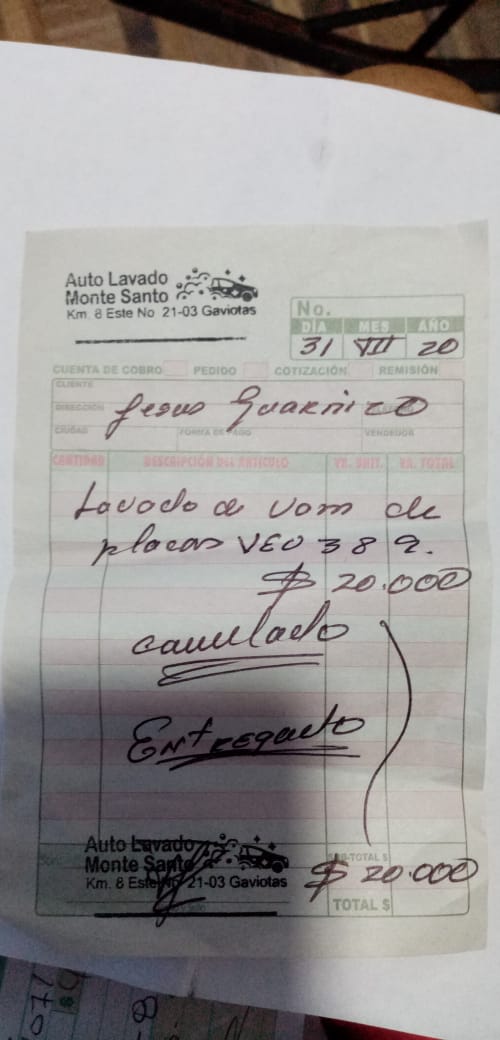 Auto Lavado
Monte Santo
Km. 8 Este No 21-03 Gaviotas
No.
DÍA MES AÑO
31 VII 20
CUENTA DE COBRO PEDIDO COTIZACIÓN REMISIÓN
CLIENTE
DIRECCIÓN
Jesus Guarnizo
CIUDAD FORMA DE PAGO VENDEDOR
CANTIDAD DESCRIPCIÓN DEL ARTÍCULO VR. UNIT. VR. TOTAL
Lavado de vans de
placas VEU 389.
$ 20.000
cancelado
Entregado
Auto Lavado
Monte Santo
Km. 8 Este No 21-03 Gaviotas
SUB-TOTAL $
$ 20.000
TOTAL $
071
8